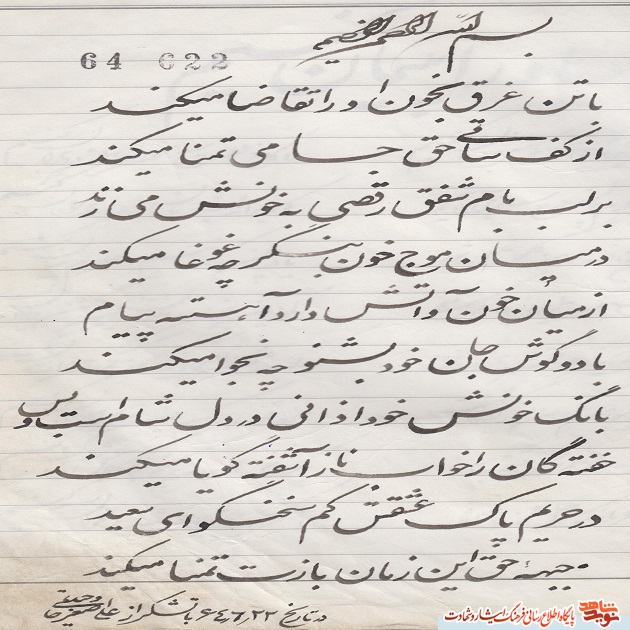 بسم الله الرحمن الرحیم
64 622
باتن غرق بخون او را تقاضا میکند
از کف ساقی حق جامی تمنا میکند
بر لب بام شفق رقصی به خونش می زند
در میان موج خون بنگر چه غوغا میکند
از میان خون و آتش دارد آهسته پیام
با دو گوش جان خود بشنو چه نجوا میکند
بانگ خونش خود اذانی در دل شام است و بس
خفته گان را خواب ناز آشفته گویا میکند
در حریم پاک عشقش کم سخنگو ای سعید
جبهۀ حق این زمان بازت تمنا میکند
در تاریخ ۶۴٫۶٫۲۲ با تشکر از
نوید شاهد پایگاه اطلاع رسانی فرهنگ ایثار و شهادت